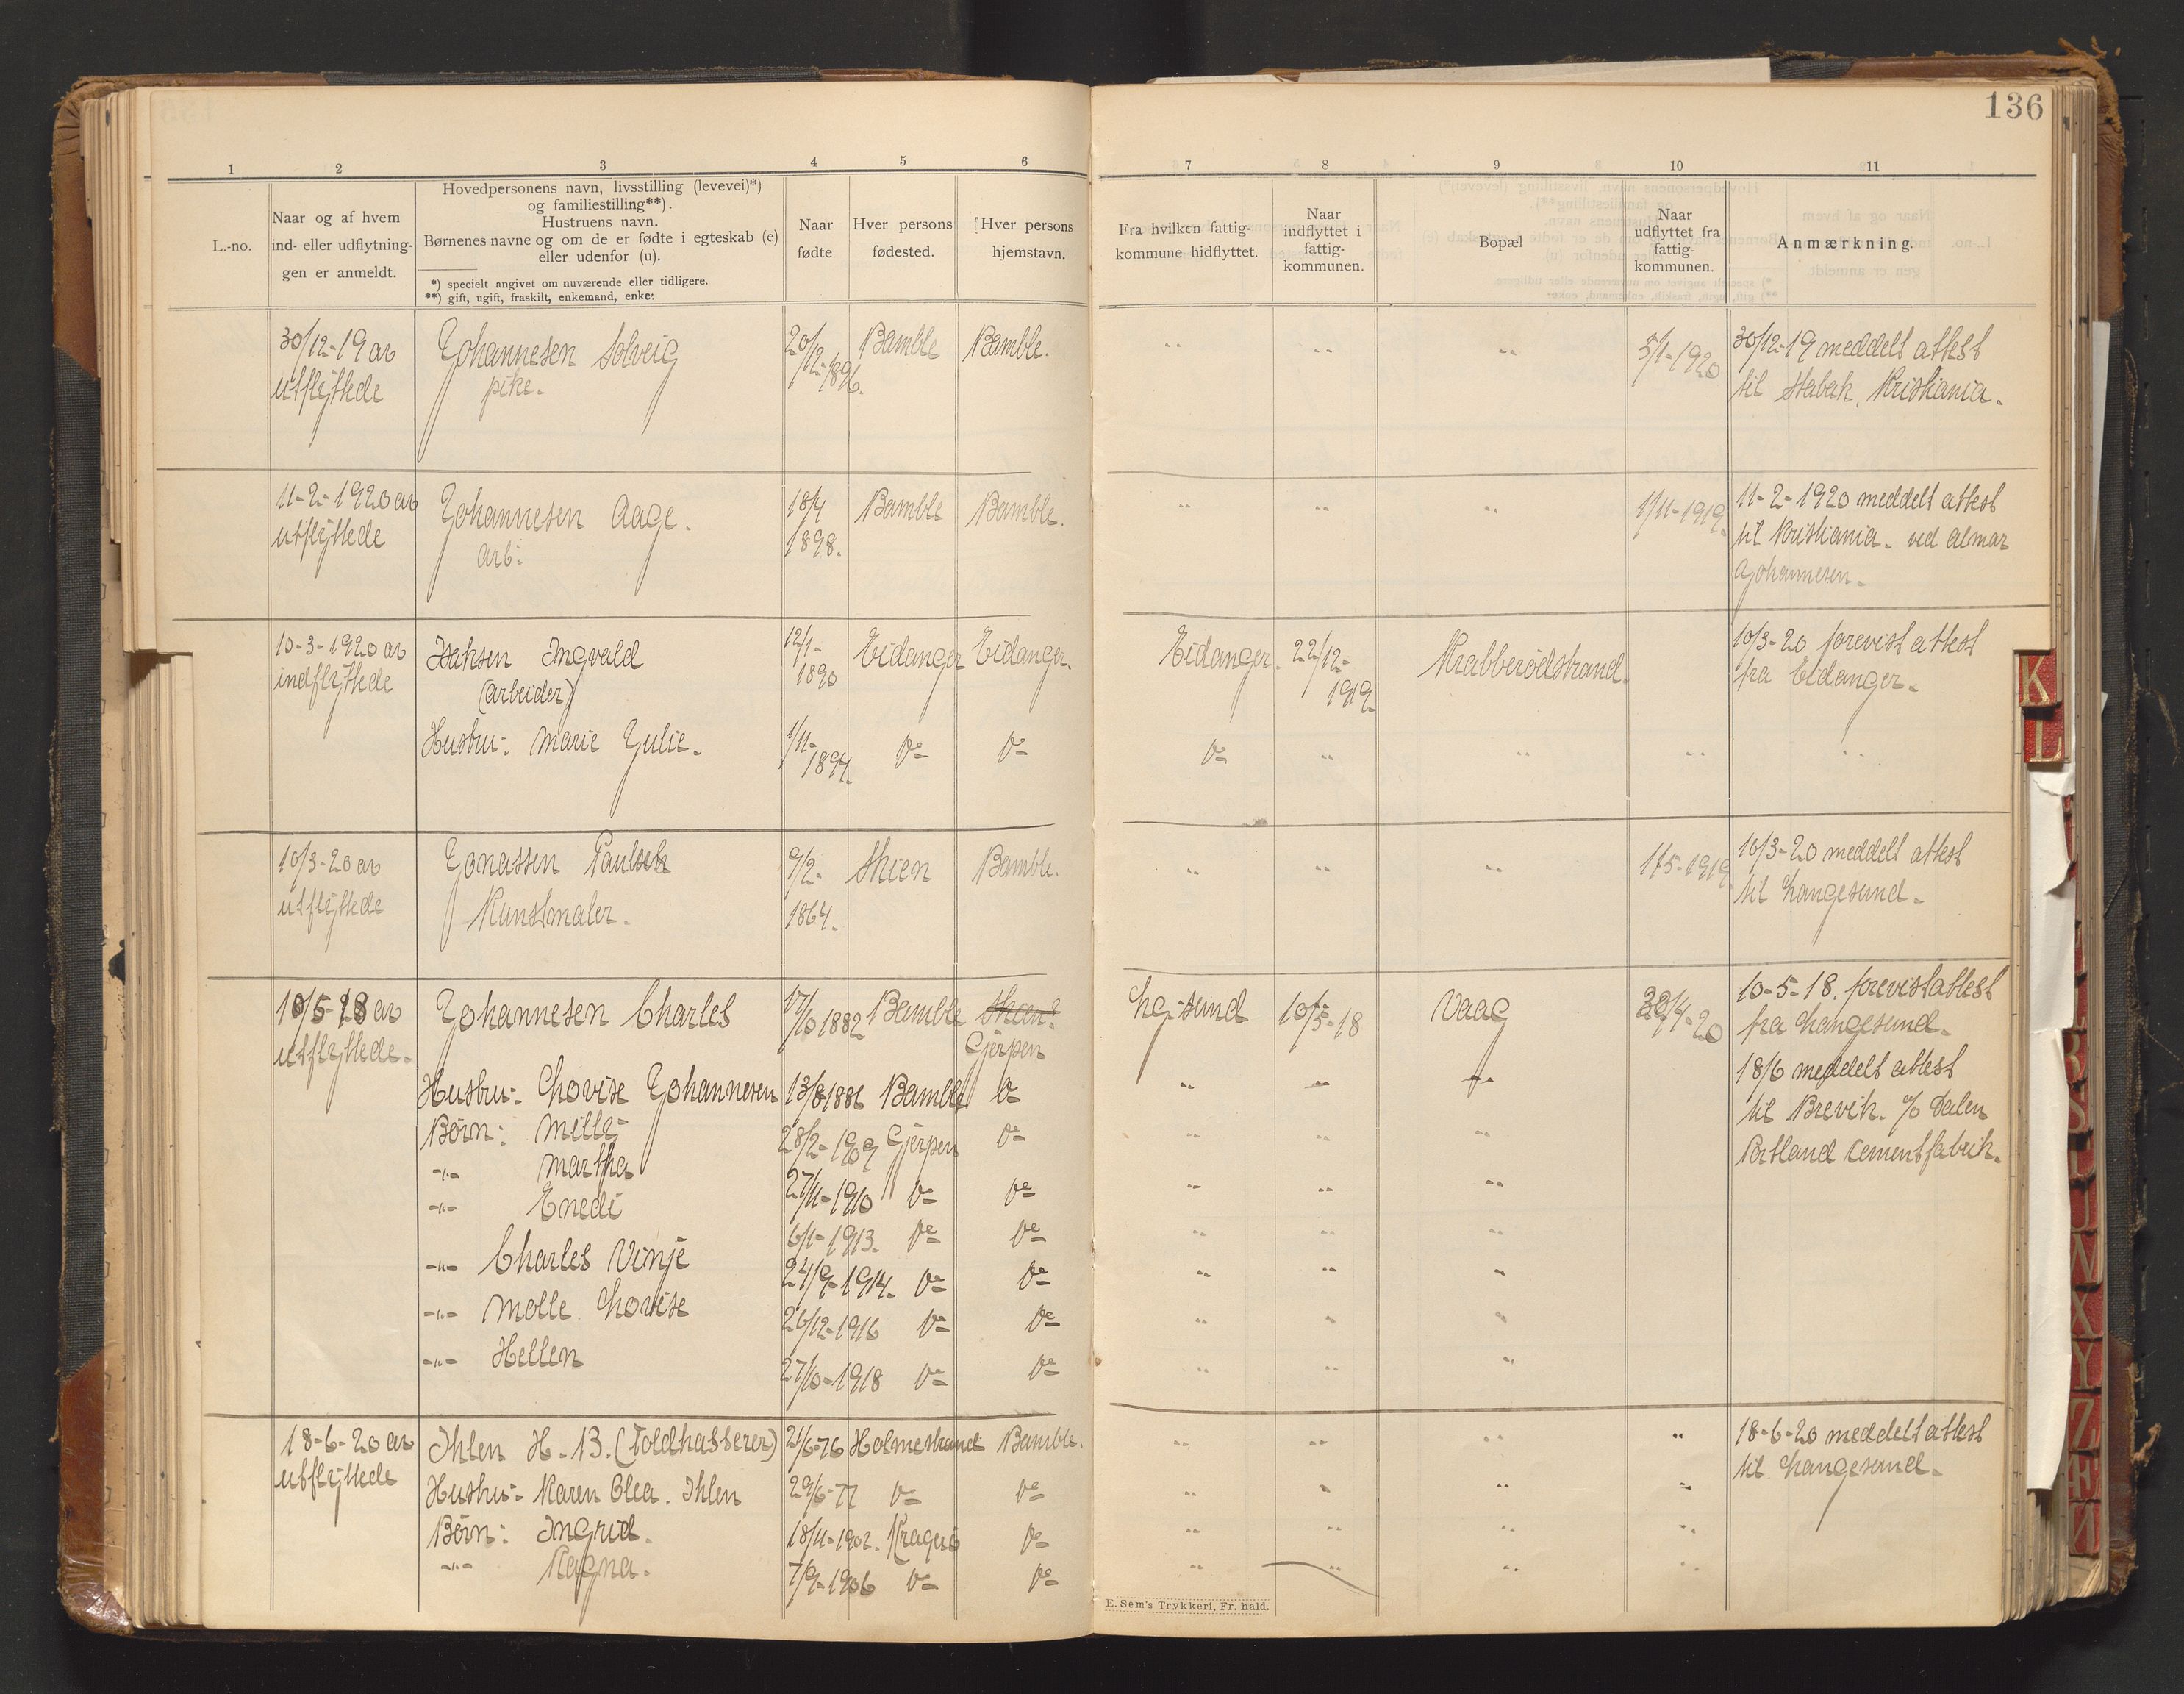 136
1 2 3 4 5 6 7 8 9 10 11
L.-no.
Naar og af hvem
ind- eller udflytnin-
gen er anmeldt.
Hovedpersonens navn, livsstilling (levevei)*)
og familiestilling**).
Hustruens navn.
Børnenes navne og om de er fødte i egteskab (e)
eller udenfor (u).
*) specielt angivet om nuværende eller tidligere.
**) gift, ugift, fraskilt, enkemand, enke.
Naar
fødte
Hver persons
fødested.
Hver persons
hjemstavn.
Fra hvilken fattig-
kommune hidflyttet.
Naar
indflyttet i
fattig-
kommunen.
Bopæl
Naar
udflyttet fra
fattig-
kommunen.
Anmærkning.
30/12-19 av Johannesen Solveig 20/12-1896. Bamble Bamble. " " " 5/1-1920 30/12-19 meddelt attest
utflyttede pike. til Stabæk, Kristiania.
11-2-1920 av Johannesen Aage. 18/4 Bamble Bamble. " " " 1/11-1919. 11-2-1920 meddelt attest
utflyttede arb: 1898. til Kristiania. ved Almar
Johannesen.
10-3-1920 av Isaksen Ingvald 12/1- Eidanger Eidanger. Eidanger. 22/12- Krabberødstrand. 10/3-20 forevist attest
indflyttede (arbeider) 1890 1919. fra Eidanger.
Hustru: Marie Julie. 1/11-1894. do do do " " " "
10/3-20 av Jonassen Paul 9/2- Skien Bamble. " " " 1/5-1919 10/3-20 meddelt attest
utflyttede Kunstmaler. 1864. til Langesund.
10/5-18 av Johannesen Charles 17/10 1882 Bamble Skien? Lg-sund 10/5-18 Vaag /4-20 10-5-18. forevist attest
utflyttede. Gjerpen fra Langesund.
Hustru: Lovise Johannesen 13/8 1886 Bamble do " " " 18/6 meddelt attest
Børn: Milly 28/2-1909 Gjerpen do " " " til Brevik. c/o Dalen
-"- Martha 27/11-1910 do do " " " Portland Cementfabrik.
-"- Enedi 6/1-1913. do do " "
-"- Charles Vinje 24/9-1914. do do " " "
-"- Molle Lovise 26/12-1916 do do " " "
-"- Hellen 27/10-1918 do do " " "
18-6-20 av Ihlen H. B. (Toldkasserer) 21/6-76 Holmestrand Bamble. " " " " 18-6-20 meddelt attest
utflyttede Hustru: Karen Olea. Ihlen 29/6-77 do do " " " " til Langesund.
Børn: Ingrid. 18/4-1902. Kragerø do " " " "
-"- Ragna. 7/9-1906 do do " " " "
E. Sem's Trykkeri, Fr. hald.
K
L
R
S
U
X
Y
Z
Æ
Ø